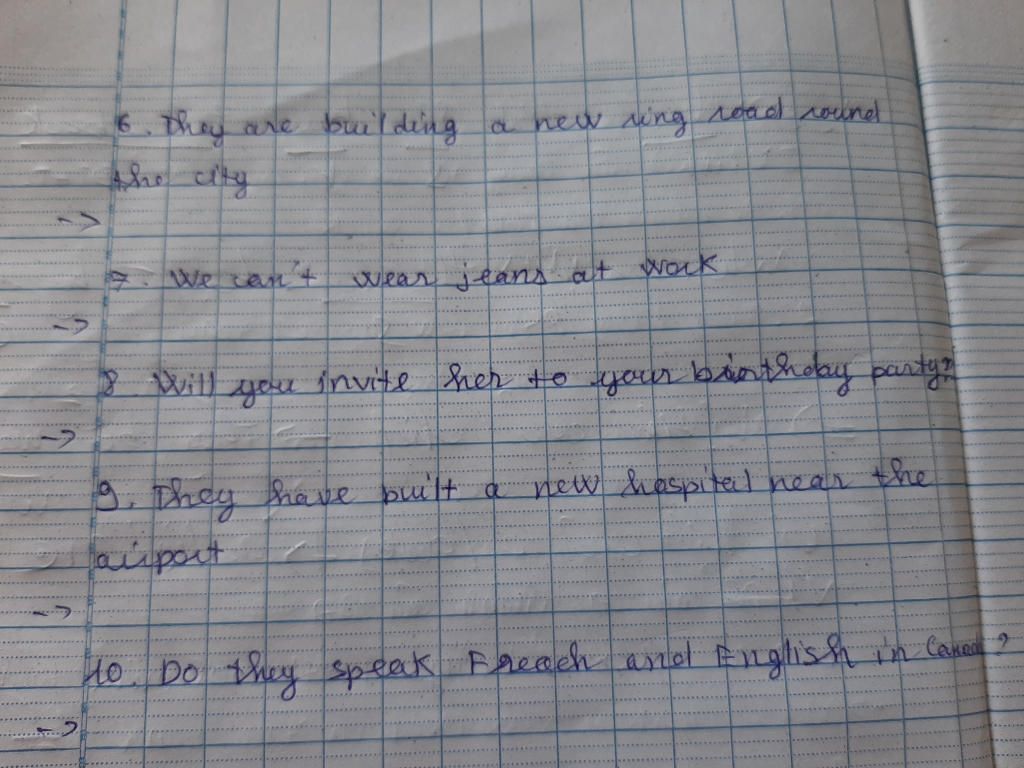 6. They are building a new ring road round
the city
->
7. We can't wear jeans at work
->
8. Will you invite her to your birthday party?
->
9. They have built a new hospital near the
airport
->
10. Do they speak French and English in Canada?
->